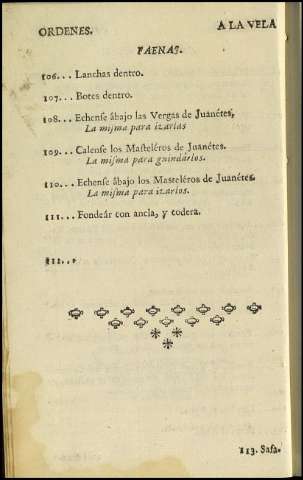 ORDENES. A LA VELA
FAENAS.
106... Lanchas dentro.
107... Botes dentro.
108... Echense âbajo las Vergas de Juanétes;
La misma para izarlas
109... Calense los Masteléros de Juanétes.
La misma para guindárlos.
110... Echense âbajo los Masteléros de Juanétes.
La misma para izarlos.
111... Fondeár con ancla, y codera.
112...
113. Safa-